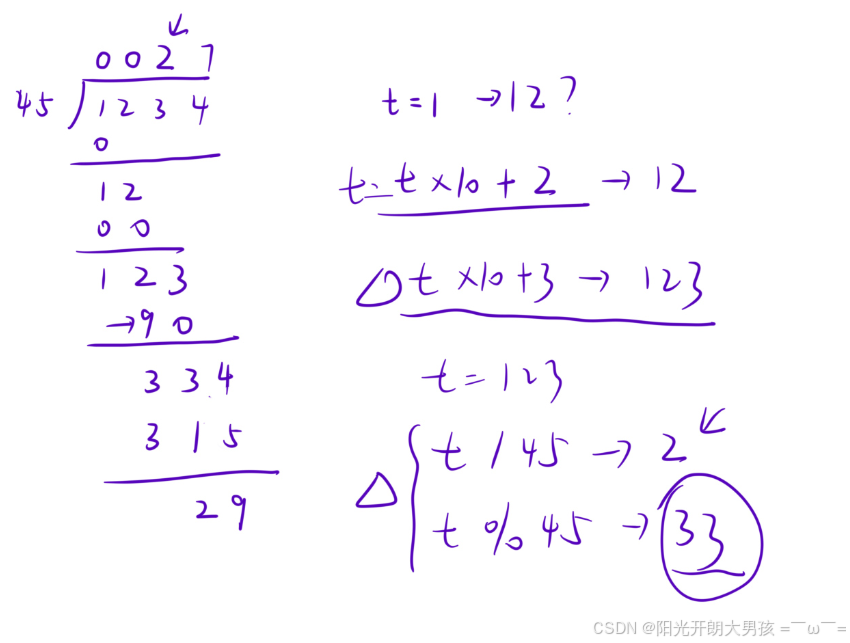 0 0 2 7
45 1 2 3 4
0
1 2
0 0
1 2 3
→9 0
3 3 4
3 1 5
2 9
t=1 →12?
t=t×10+2 →12
△t×10+3→ 123
t=123
△
t / 45 → 2
t % 45 → 33
CSDN @阳光开朗大男孩 =￣ω￣=